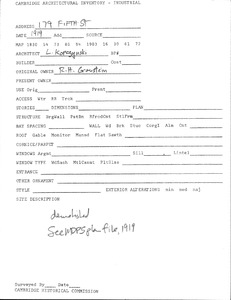 CAMBRIDGE ARCHITECTURAL INVENTORY - INDUSTRIAL
ADDRESS 179 FIFTH ST
DATE 1919 Add SOURCE
MAP 1830 54 73 81 86 1903 16 30 61 72
ARCHITECT L. BP#
BUILDER Cost
ORIGINAL OWNER R.H.
PRESENT OWNER
USE Orig Present
ACCESS Wtr RR Truck
STORIES DIMENSIONS PLAN
STRUCTURE BrgWall
BAY SPACING WALL Wd Brk Stuc Corgl Alm Oth
ROOF Gable Monitor Mnrod Flat Sawth
CORNICE/PARAPET
WINDOWS Sill Lintel
WINDOW TYPE WdSash MtlCasml
ENTRANCE
OTHER ORNAMENT
STYLE EXTERIOR ALTERATIONS min mod
SITE DESCRIPTION
demolished
See MDPS plan file, 1919
Surveyed By Date
CAMBRIDGE HISTORICAL COMMISSION